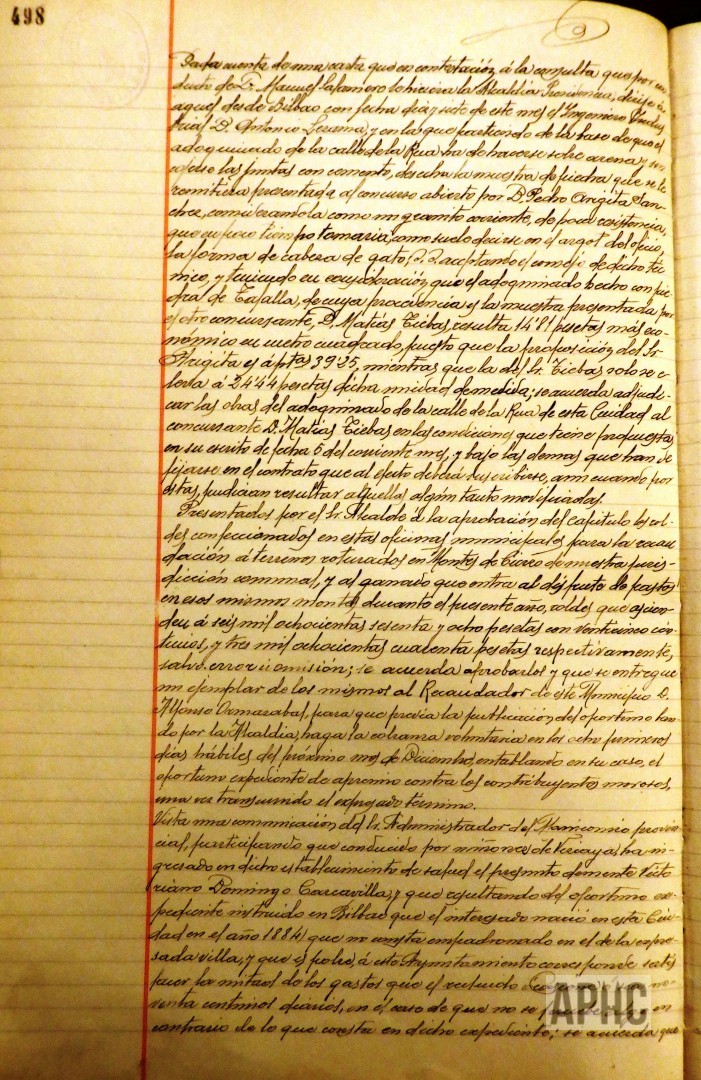 498
9
Dada cuenta de una carta que en contestación á la consulta que por con-
ducto de D. Manuel Salamero le hiciera la Alcaldía Presidencia, dirije á
aquel desde Bilbao con fecha diez y siete de este mes el Ingeniero Indus-
trial D. Antonio Lezama, y en la que partiendo de la base de que el
adoquinado de la calle de la Rua ha de hacerse sobre arena y
las juntas con cemento, desecha la muestra de piedra que se le
remitiera presentada al concurso abierto por D. Pedro Argita San-
chez, considerandola como un granito corriente, de poca resistencia,
que en poco tiempo tomaria, como suele decirse en el argot del oficio,
la forma de cabeza de gato; aceptando el consejo de dicho téc-
nico, y teniendo en consideración que el adoquinado hecho con pie-
dra de Tafalla, de cuya procedencia es la muestra presentada por
el otro concursante, D. Matías Tiebas, resulta 14'81 pesetas más eco-
nómico en metro cuadrado, puesto que la proposición del Sr.
Argita es á ptas 39'25, mientras que la del Sr. Tiebas solo se e-
leva á 24'44 pesetas dicha unidad de medida; se acuerda adjudi-
car las obras del adoquinado de la calle de la Rua de esta Ciudad al
concursante D. Matías Tiebas en las condiciones que tiene propuestas
en su escrito de fecha 6 del corriente mes, y bajo las demas que han de
fijarse en el contrato que al efecto deberá suscribirse, aun cuando por
estas pudieran resultar aquellas algún tanto modificadas.
Presentados por el Sr. Alcalde á la aprobación del capitulo los rol-
des confeccionados en estas oficinas municipales para la recau-
dación á terrenos roturados en Montes de Cierzo de nuestra juris-
dicción comunal, y al ganado que entra al disfrute de pastos
en esos mismos montes durante el presente año, roldes que ascien-
den á seis mil ochocientas sesenta y ocho pesetas con veinticinco cén-
timos, y tres mil ochocientas cuarenta pesetas respectivamente,
salvo error ú omisión; se acuerda aprobarlos y que se entregue
un ejemplar de los mismos al Recaudador de este Municipio D.
Alfonso Ormazabal, para que previa la publicación del oportuno ban-
do por la Alcaldía, haga la cobranza voluntaria en los ocho primeros
días hábiles del próximo mes de Diciembre, entablando en su caso, el
oportuno expediente de apremio contra los contribuyentes morosos,
una vez transcurrido el expresado término.
Vista una comunicación del Sr. Administrador del Manicomio provin-
cial, participando que conducido por miñones de Vizcaya, ha in-
gresado en dicho establecimiento de salud el presunto demente Victo-
riano Domingo Carcavilla; y que resultando del oportuno ex-
pediente instruido en Bilbao que el interesado nació en esta Ciu-
dad en el año 1884, que no consta empadronado en el de la expre-
sada villa, y que es pobre, á este Ayuntamiento corresponde satis-
facer la mitad de los gastos que el recluido no-
venta centimos diarios, en el caso de que no se en
contrario de lo que consta en dicho expediente; se acuerda que
APHC